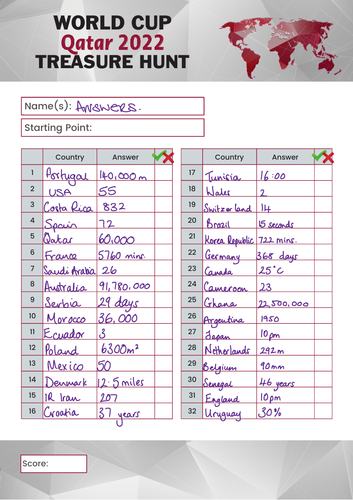 WORLD CUP
Qatar 2022
TREASURE HUNT
Name(s): Answers.
Starting Point:
Country Answer
1 Portugal 140,000 m
2 USA 55
3 Costa Rica 832
4 Spain 72
5 Qatar 60,000
6 France 5760 mins.
7 Saudi Arabia 26
8 Australia 91,780,000
9 Serbia 29 days
10 Morocco 36,000
11 Ecuador 3
12 Poland 6300m²
13 Mexico 50
14 Denmark 12.5 miles
15 IR Iran 207
16 Croatia 37 years
Country Answer
17 Tunisia 16:00
18 Wales 2
19 Switzerland 14
20 Brazil 15 seconds
21 Korea Republic 722 mins.
22 Germany 368 days
23 Canada 25°C
24 Cameroon 23
25 Ghana 22,500,000
26 Argentina 1950
27 Japan 10pm
28 Netherlands 292m
29 Belgium 90mm
30 Senegal 46 years
31 England 10pm
32 Uruguay 30%
Score: